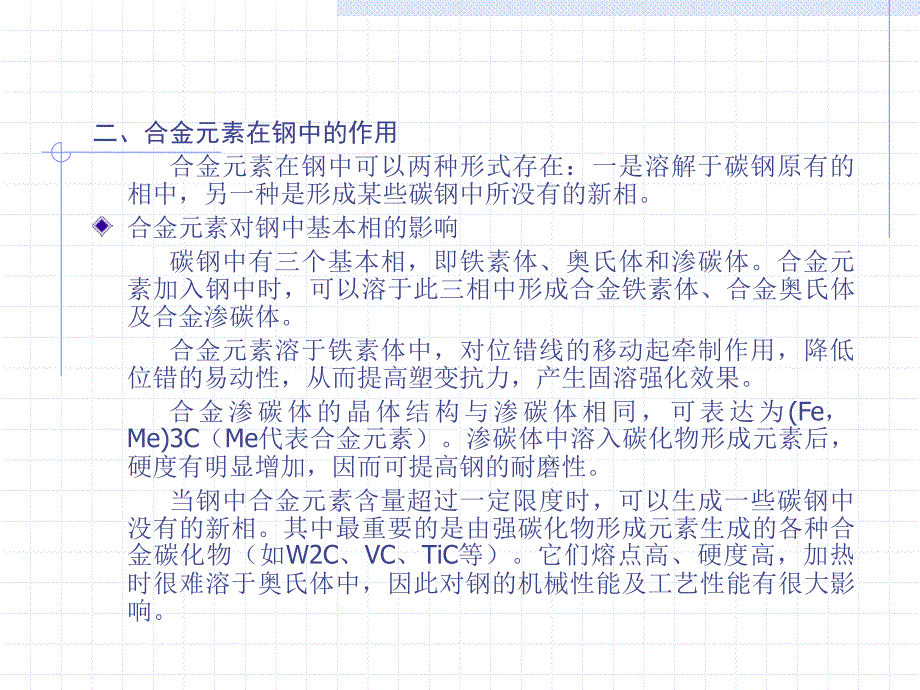 二、合金元素在钢中的作用
合金元素在钢中可以两种形式存在：一是溶解于碳钢原有的
相中，另一种是形成某些碳钢中所没有的新相。
合金元素对钢中基本相的影响
碳钢中有三个基本相，即铁素体、奥氏体和渗碳体。合金元
素加入钢中时，可以溶于此三相中形成合金铁素体、合金奥氏体
及合金渗碳体。
合金元素溶于铁素体中，对位错线的移动起牵制作用，降低
位错的易动性，从而提高塑变抗力，产生固溶强化效果。
合金渗碳体的晶体结构与渗碳体相同，可表达为(Fe，
Me)3C（Me代表合金元素）。渗碳体中溶入碳化物形成元素后，
硬度有明显增加，因而可提高钢的耐磨性。
当钢中合金元素含量超过一定限度时，可以生成一些碳钢中
没有的新相。其中最重要的是由强碳化物形成元素生成的各种合
金碳化物（如W2C、VC、TiC等）。它们熔点高、硬度高，加热
时很难溶于奥氏体中，因此对钢的机械性能及工艺性能有很大影
响。